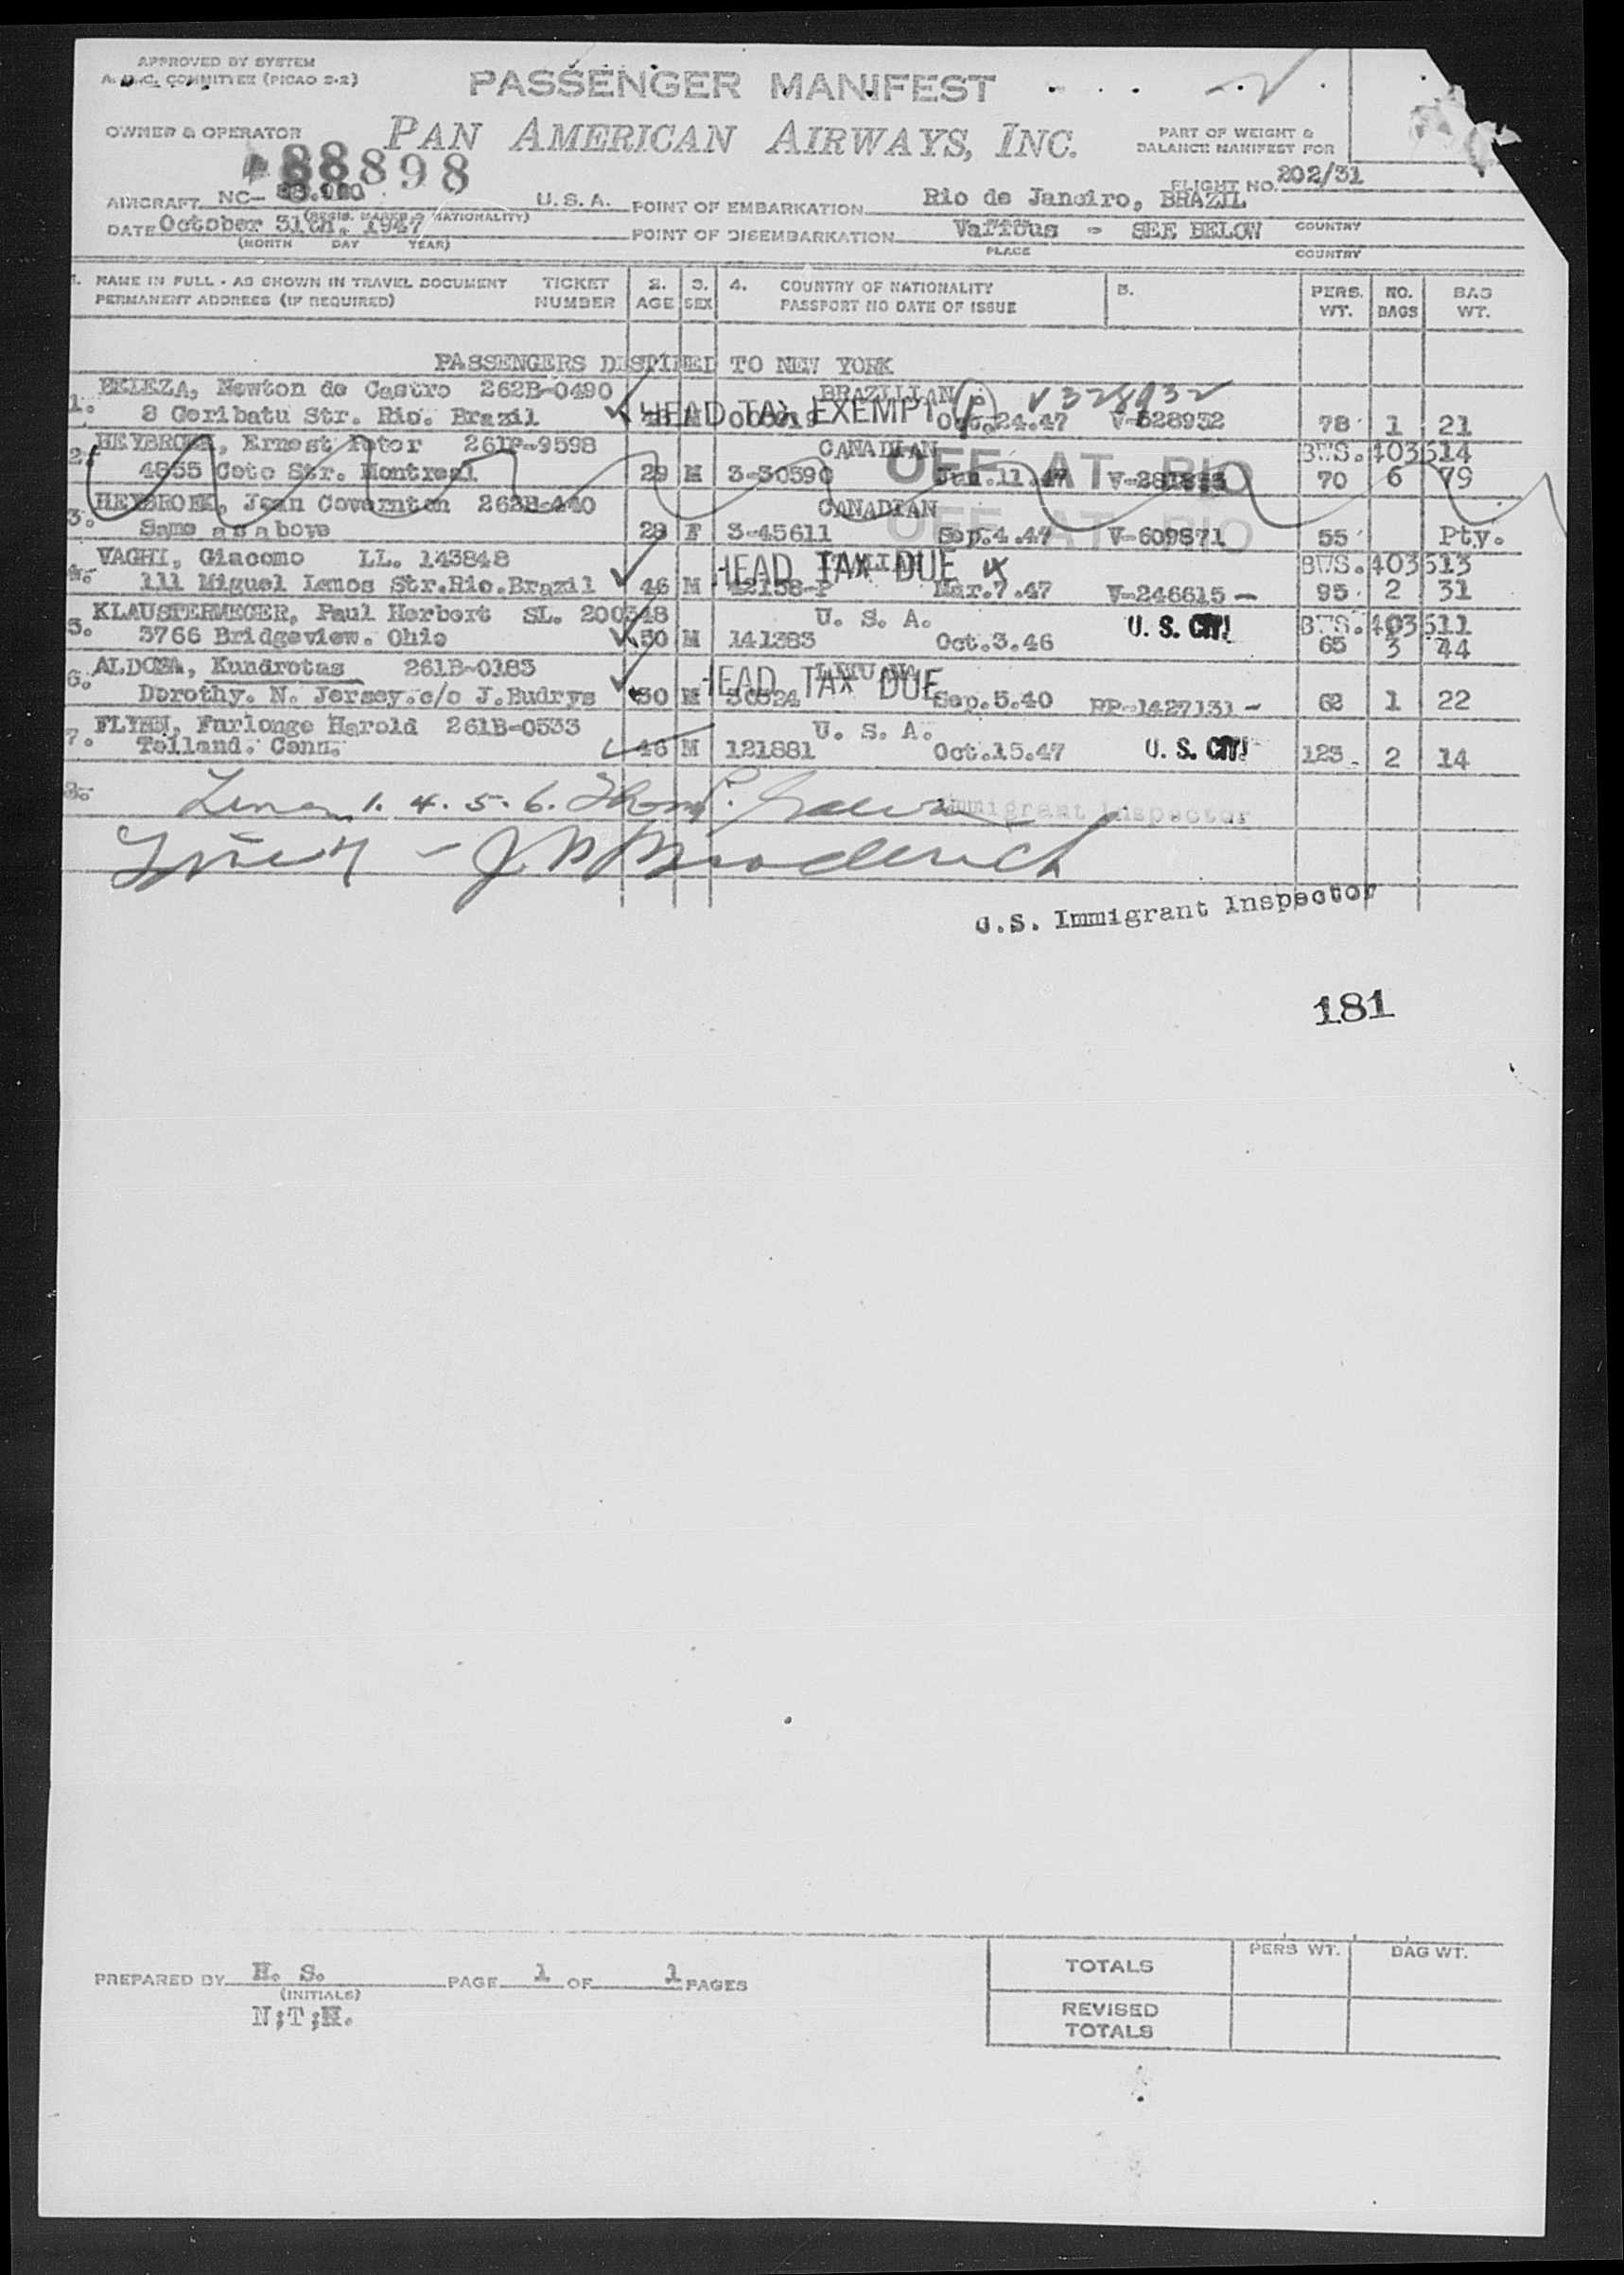 APPROVED BY SYSTEM
COMMITTEE (PICAO S-2)
PASSENGER MANIFEST
OWNER & OPERATOR PAN AMERICAN AIRWAYS, INC.
PART OF WEIGHT &
BALANCE MANIFEST FOR
88898
FLIGHT NO. 202/31
AIRCRAFT NC- U. S. A. POINT OF EMBARKATION Rio de Janeiro, BRAZIL
(REGIS. MARKS & NATIONALITY) COUNTRY
DATE October 31th. 1947 POINT OF DISEMBARKATION Various - SEE BELOW
(MONTH DAY YEAR) PLACE COUNTRY
1. NAME IN FULL - AS SHOWN IN TRAVEL DOCUMENT TICKET 2. 3. 4. COUNTRY OF NATIONALITY 5. PERS. NO. BAG
PERMANENT ADDRESS (IF REQUIRED) NUMBER AGE SEX PASSPORT NO DATE OF ISSUE WT. BAGS WT.
PASSENGERS DESTINED TO NEW YORK
1. BELEZA, Newton de Castro 262B-0490 BRAZILIAN V328932
8 Goribatu Str. Rio. Brazil HEAD TAX EXEMPT Oct.24.47 V-328932 78 1 21
2. HEYBROEK, Ernest Peter 261B-9598 CANADIAN BWS.403514
4855 Cote Str. Montreal 29 M 3-30590 OFF AT RIO Jun.11.47 70 6 79
3. HEYBROEK, Jean Governton 262B-440 CANADIAN
Same as above 29 F 3-45611 OFF AT RIO Sep.4.47 V-609871 55 Pty.
4. VAGHI, Giacomo LL. 143848 HEAD TAX DUE BWS.403513
111 Miguel Lemos Str.Rio.Brazil 46 M 42138-P Mar.7.47 V-246615- 95 2 31
5. KLAUSTERMEGER, Paul Herbert SL. 200348 U. S. A. U. S. CIT! BWS.403511
3766 Bridgeview. Ohio 30 M 141383 Oct.3.46 65 3 44
6. ALDONA, Kundrotas 261B-0183 HEAD TAX DUE
Dorothy. N. Jersey.c/o J.Budrys 30 M 30524 Sep.5.40 PP-1427131- 62 1 22
7. FLYNN, Furlonge Harold 261B-0533 U. S. A.
Tolland. Conn. 46 M 121881 Oct.15.47 U. S. CIT! 123 2 14
8. Lines 1. 4. 5. 6. Immigrant Inspector
Line 7 - J B Broderick
U.S. Immigrant Inspector
181
PREPARED BY H. S. PAGE 1 OF 1 PAGES
(INITIALS)
N;T;H.
TOTALS PERS WT. BAG WT.
REVISED
TOTALS